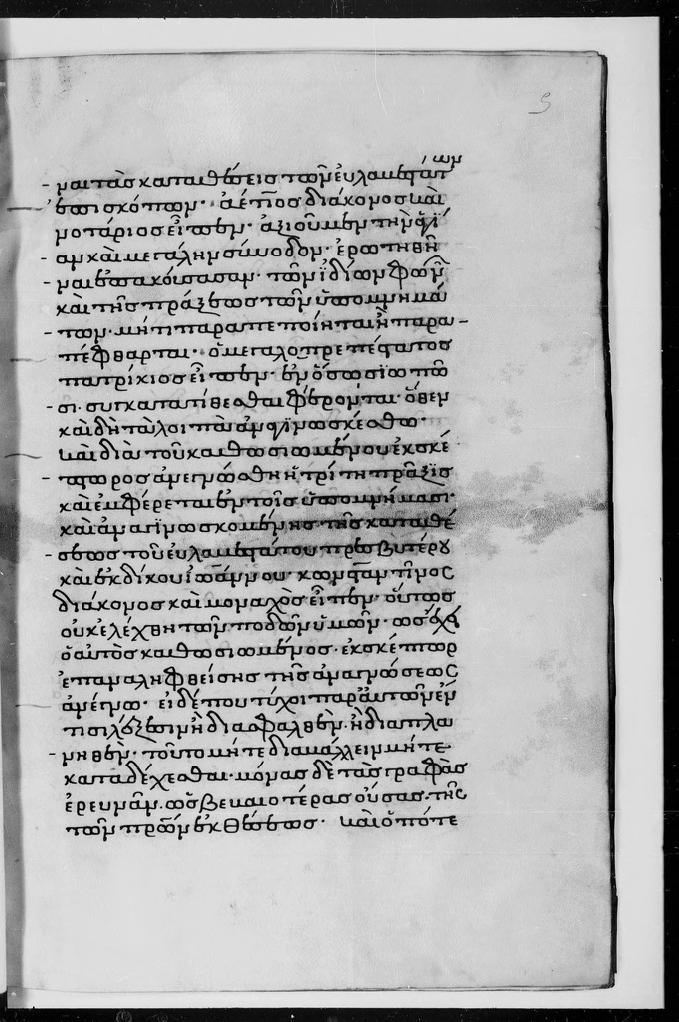 ναι τὰς καταθέσεις τῶν εὐλαβεστάτων
ἐπισκόπων· ἀέτιος διάκονος καὶ
νοτάριος εἶπεν· ἀξιοῦμεν τὴν ἁγί
αν καὶ μεγάλην σύνοδον· ἐρωτηθῆ
ναι ἐπακούσασαν· τῶν ἰδίων φωνῶν
καὶ τῆς πράξεως τῶν ὑπομνημά
των· μήτι παραπεποίηται ἢ παρα
πέφθαρται· ὁ μεγαλοπρεπέστατος
πατρίκιος εἶπεν· ἐν ὅσω
σι· συγκατατίθεσθαι φέρονται· ὅθεν
καὶ δὴ τὰ λοιπὰ ἀναγινωσκέσθω·
καὶ διὰ τοῦ καθωσιωμένου ἐκσκέ
πτωρος ἀνεγνώσθη ἡ τρίτη πρᾶξις
καὶ ἐμφέρεται ἐν τοῖς ὑπομνήμασι·
καὶ ἀναγινωσκομένης τῆς καταθέ
σεως τοῦ εὐλαβεστάτου πρεσβυτέρου
καὶ ἐκδίκου ἰωάννου· κωνσταντῖνος
διάκονος καὶ μοναχὸς εἶπεν· οὕτως
οὐκ ἐλέχθη τῶν ποδῶν ὑμῶν· ὡς
ὁ αὐτὸς καθωσιωμένος· ἐκσκέπτωρ
ἐπαναληφθείσης τῆς ἀναγνώσεως
ἀνέγνω· εἰ δέ που τύχοι παρ' αὐτῶν ἔν
τισι λέξεσιν ἢ διασφαλθὲν· ἢ διαπλα
νηθὲν· τοῦτο μήτε διαβάλλειν μήτε
καταδέχεσθαι· μόνας δὲ τὰς γραφὰς
ἐρευνᾶν· ὡς βεβαιοτέρας οὔσας· τῆς
τῶν πρων ἐκθέσεως· καὶ ὁπότε